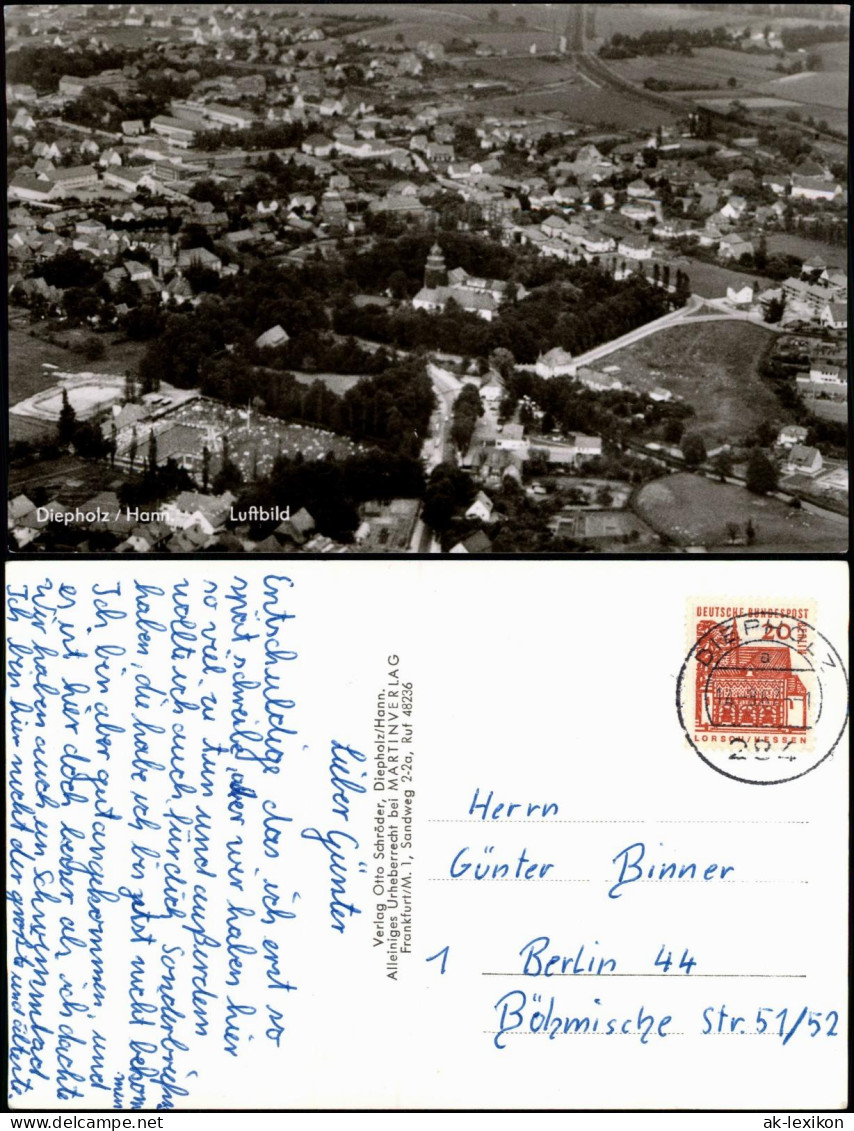 Diepholz / Hann. Luftbild
Lieber Günter
Entschuldige das ich erst so
spät schreibe, aber wir haben hier
so viel zu tun und außerdem
wollte ich auch für dich Sonderbriefm
haben, die habe ich bis jetzt nicht bekom
men
Ich bin aber gut angekommen, und
es ist hier doch besser als ich dachte
Wir haben auch ein Schwimmbad
Ich bin hier nicht der größte und älteste.
Verlag Otto Schröder, Diepholz/Hann.
Alleiniges Urheberrecht bei MARTINVERLAG
Frankfurt/M. 1, Sandweg 2-2a, Ruf 48236
DEUTSCHE BUNDESPOST
BERLIN
20
LORSCH/HESSEN
DIEPHOLZ
a
284
Herrn
Günter Binner
1 Berlin 44
Böhmische Str. 51/52
www.ansichtskarten-lexikon.de
ak-lexikon